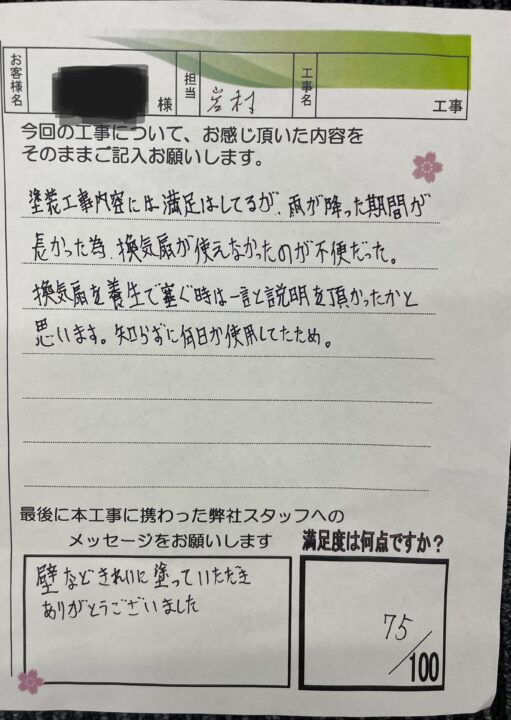 お客様名 様 担当 岩村 工事名 工事
今回の工事について、お感じ頂いた内容を
そのままご記入お願いします。
塗装工事内容には満足はしてるが、雨が降った期間が
長かった為、換気扇が使えなかったのが不便だった。
換気扇を養生で塞ぐ時は一言と説明を頂かったかと
思います。知らずに何日か使用してたため。
最後に本工事に携わった弊社スタッフへの
メッセージをお願いします
満足度は何点ですか?
壁などきれいに塗っていただき
ありがとうございました
75/100